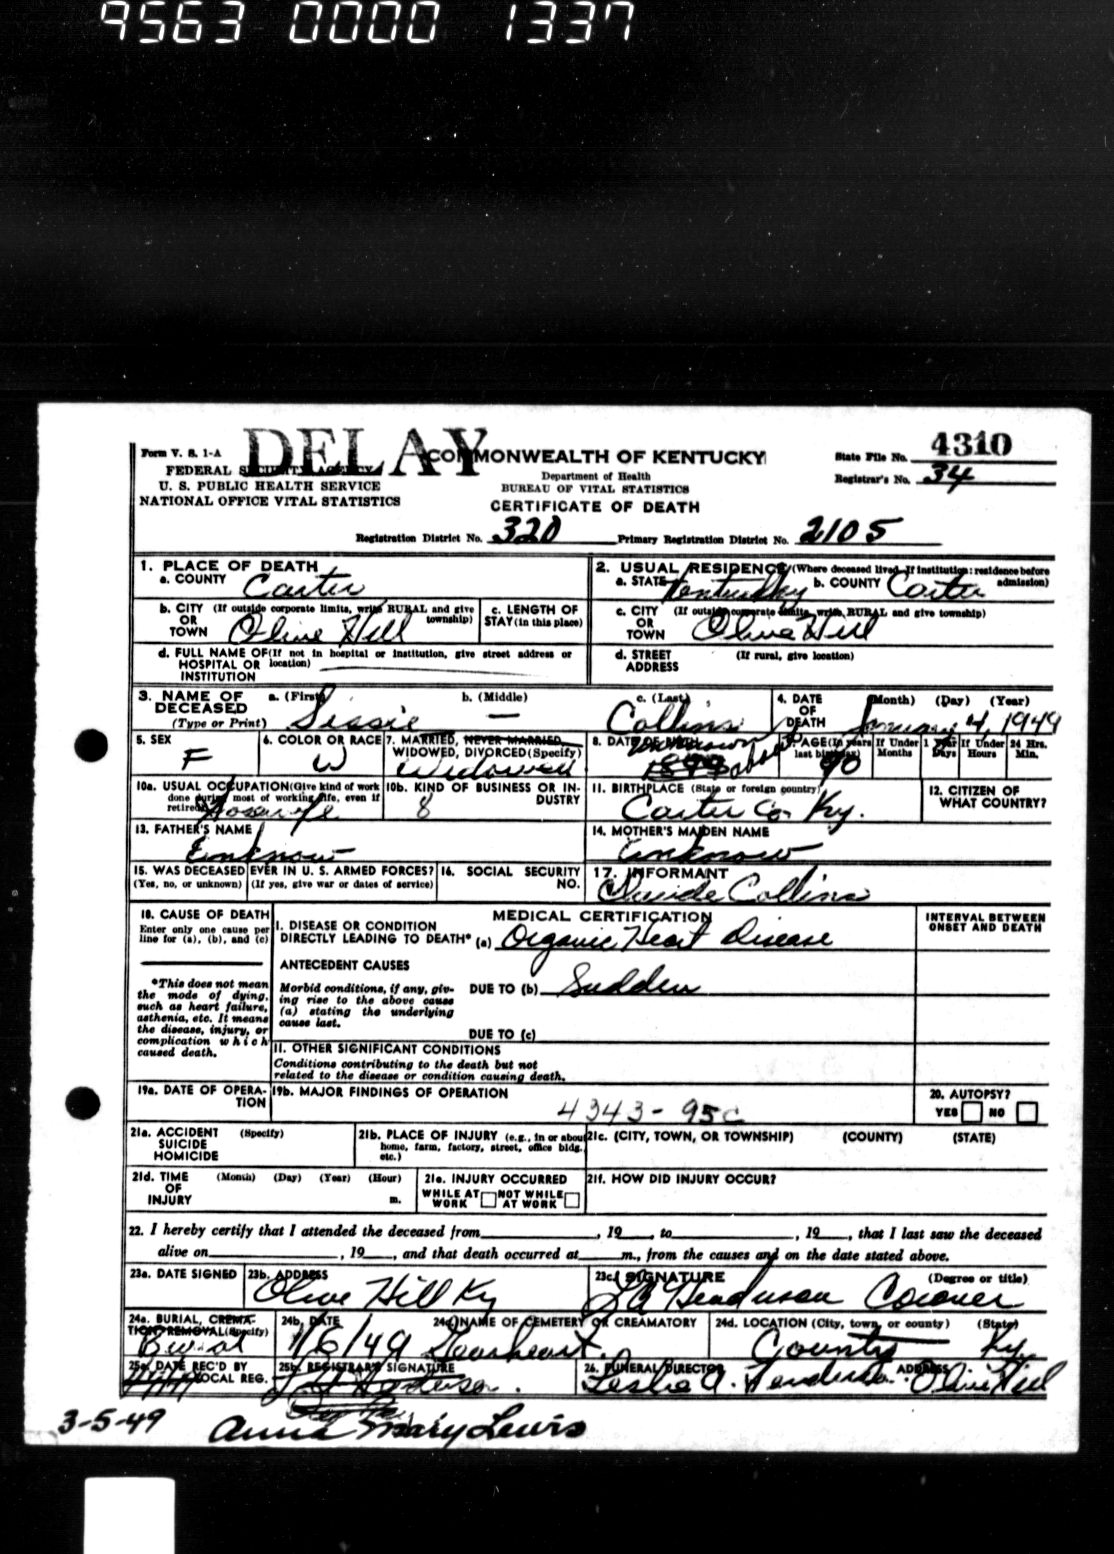 9563 0000 1337
DELAY
Form V. S. 1-A
FEDERAL SECURITY AGENCY
U. S. PUBLIC HEALTH SERVICE
NATIONAL OFFICE VITAL STATISTICS
COMMONWEALTH OF KENTUCKY
Department of Health
BUREAU OF VITAL STATISTICS
CERTIFICATE OF DEATH
State File No. 4310
Registrar's No. 34
Registration District No. 320 Primary Registration District No. 2105
1. PLACE OF DEATH
a. COUNTY Carter
2. USUAL RESIDENCE (Where deceased lived. If institution: residence before admission)
a. STATE Kentucky b. COUNTY Carter
b. CITY (If outside corporate limits, write RURAL and give township) OR TOWN Olive Hill
c. LENGTH OF STAY (in this place)
c. CITY (If outside corporate limits, write RURAL and give township) OR TOWN Olive Hill
d. FULL NAME OF (If not in hospital or institution, give street address or location) HOSPITAL OR INSTITUTION
d. STREET ADDRESS (If rural, give location)
3. NAME OF DECEASED (Type or Print) a. (First) b. (Middle) — c. (Last) Collins
4. DATE OF DEATH (Month) (Day) (Year) January 4, 1949
5. SEX F
6. COLOR OR RACE W
7. MARRIED, NEVER MARRIED, WIDOWED, DIVORCED (Specify) Widowed
8. DATE OF BIRTH
9. AGE (In years last birthday) about 90 If Under 1 Year Months Days If Under 24 Hrs. Hours Min.
10a. USUAL OCCUPATION (Give kind of work done during most of working life, even if retired)
10b. KIND OF BUSINESS OR INDUSTRY 8
11. BIRTHPLACE (State or foreign country) Carter Co. Ky.
12. CITIZEN OF WHAT COUNTRY?
13. FATHER'S NAME Unknow
14. MOTHER'S MAIDEN NAME Unknow
15. WAS DECEASED EVER IN U. S. ARMED FORCES? (Yes, no, or unknown) (If yes, give war or dates of service)
16. SOCIAL SECURITY NO.
17. INFORMANT Claude Collins
18. CAUSE OF DEATH
Enter only one cause per line for (a), (b), and (c)
MEDICAL CERTIFICATION
INTERVAL BETWEEN ONSET AND DEATH
I. DISEASE OR CONDITION DIRECTLY LEADING TO DEATH* (a) Organic Heart Disease
*This does not mean the mode of dying, such as heart failure, asthenia, etc. It means the disease, injury, or complication which caused death.
ANTECEDENT CAUSES
Morbid conditions, if any, giving rise to the above cause (a) stating the underlying cause last.
DUE TO (b) Sudden
DUE TO (c)
II. OTHER SIGNIFICANT CONDITIONS
Conditions contributing to the death but not related to the disease or condition causing death.
19a. DATE OF OPERATION
19b. MAJOR FINDINGS OF OPERATION
4343-95c
20. AUTOPSY?
YES NO
21a. ACCIDENT SUICIDE HOMICIDE (Specify)
21b. PLACE OF INJURY (e.g., in or about home, farm, factory, street, office bldg., etc.)
21c. (CITY, TOWN, OR TOWNSHIP) (COUNTY) (STATE)
21d. TIME OF INJURY (Month) (Day) (Year) (Hour) m.
21e. INJURY OCCURRED
WHILE AT WORK NOT WHILE AT WORK
21f. HOW DID INJURY OCCUR?
22. I hereby certify that I attended the deceased from , 19 , to , 19 , that I last saw the deceased
alive on , 19 , and that death occurred at m., from the causes and on the date stated above.
23a. DATE SIGNED
23b. ADDRESS Olive Hill Ky
23c. SIGNATURE (Degree or title) Coroner
24a. BURIAL, CREMATION, REMOVAL (Specify) Burial
24b. DATE 1/6/49
24c. NAME OF CEMETERY OR CREAMATORY Gearheart.
24d. LOCATION (City, town, or county) (State) County Ky.
25a. DATE REC'D BY LOCAL REG.
25b. REGISTRAR'S SIGNATURE
26. FUNERAL DIRECTOR Leslie A. ADDRESS Olive Hill
3-5-49
Anna Mary Lewis